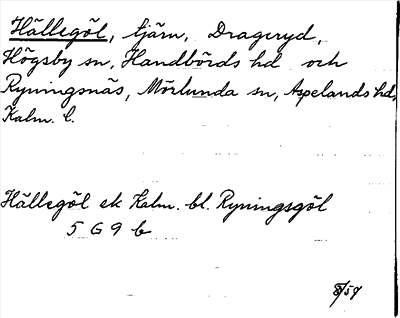 Hällegöl, tjärn, Drageryd,
Högsby sn, Handbörds hd och
Ryningsnäs, Mörlunda sn, Aspelands hd,
Kalm. l.
Hällegöl ek Kalm. bl. Ryningsgöl
5 G 9 b
8/59